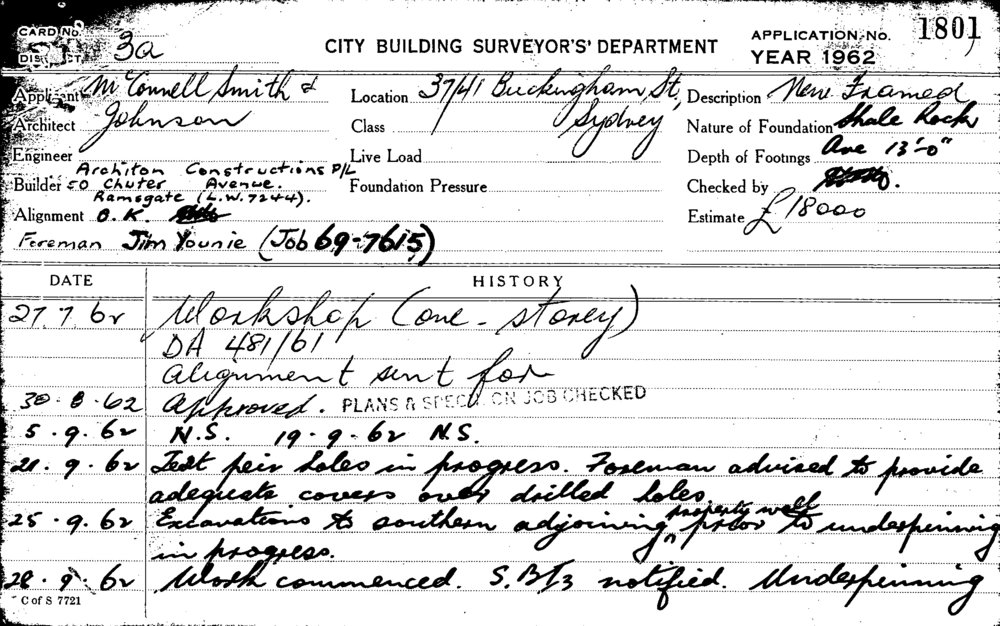 CARD No. 3a
DISTRICT
CITY BUILDING SURVEYOR'S' DEPARTMENT
APPLICATION No. 1801
YEAR 1962
Applicant McConnell Smith &
Architect Johnson
Engineer
Builder Architon Constructions P/L
50 Chuter Avenue.
Ramsgate (L.W. 7244).
Alignment O.K.
Foreman Jim Younie (Job 69-7615)
Location 37/41 Buckingham St,
Sydney
Class
Live Load
Foundation Pressure
Description New Framed
Nature of Foundation Shale Rock
Depth of Footings Ave 13'-0"
Checked by
Estimate £18000
DATE HISTORY
27.7.62 Workshop (one-storey)
DA 481/61
alignment sent for
30.8.62 Approved. PLANS & SPECN. ON JOB CHECKED
5.9.62 N.S. 19.9.62 N.S.
21.9.62 Test peir holes in progress. Foreman advised to provide
adequate covers over drilled holes.
25.9.62 Excavations to southern adjoining property wall prior to underpinning
in progress.
28.9.62 Work commenced. S.B.I3 notified. Underpinning
C of S 7721